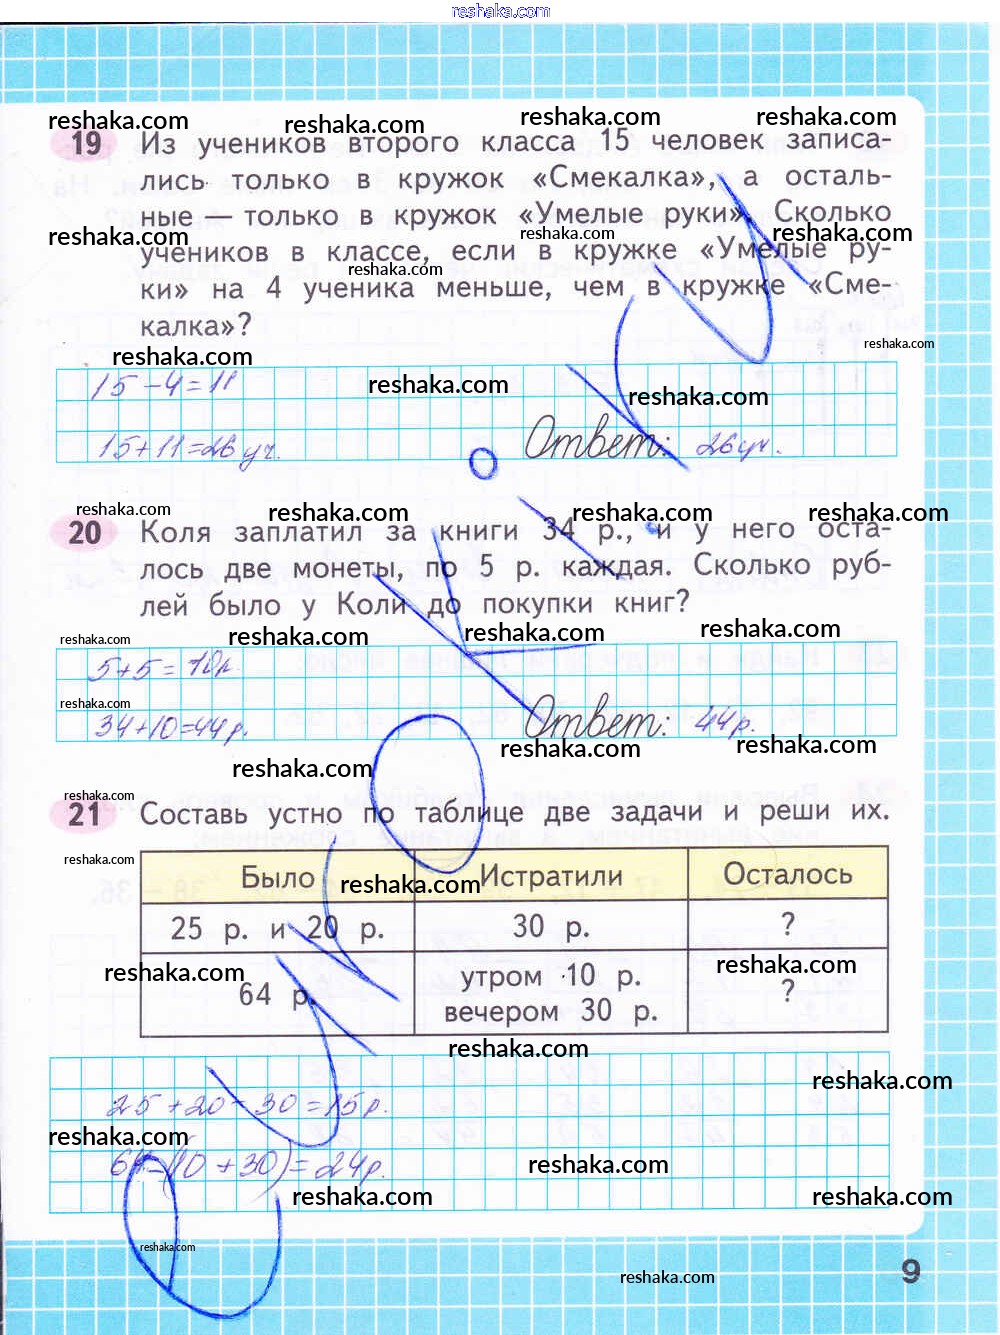 reshaka.com
reshaka.com reshaka.com reshaka.com reshaka.com
19 Из учеников второго класса 15 человек записа-
лись только в кружок «Смекалка», а осталь-
ные — только в кружок «Умелые руки». Сколько
reshaka.com reshaka.com reshaka.com
учеников в классе, если в кружке «Умелые ру-
reshaka.com
ки» на 4 ученика меньше, чем в кружке «Сме-
калка»?
reshaka.com
reshaka.com
15 - 4 = 11
reshaka.com reshaka.com
15 + 11 = 26 уч. Ответ: 26 уч.
reshaka.com reshaka.com reshaka.com reshaka.com
20 Коля заплатил за книги 34 р., и у него оста-
лось две монеты, по 5 р. каждая. Сколько руб-
лей было у Коли до покупки книг?
reshaka.com reshaka.com reshaka.com reshaka.com
5 + 5 = 10 р.
reshaka.com
34 + 10 = 44 р. Ответ: 44 р.
reshaka.com reshaka.com
reshaka.com
reshaka.com
21 Составь устно по таблице две задачи и реши их.
reshaka.com
Было Истратили Осталось
reshaka.com
25 р. и 20 р. 30 р. ?
reshaka.com reshaka.com
64 р. утром 10 р. ?
вечером 30 р.
reshaka.com
reshaka.com
25 + 20 - 30 = 15 р.
reshaka.com
64 - (10 + 30) = 24 р.
reshaka.com
reshaka.com reshaka.com
reshaka.com
reshaka.com
9